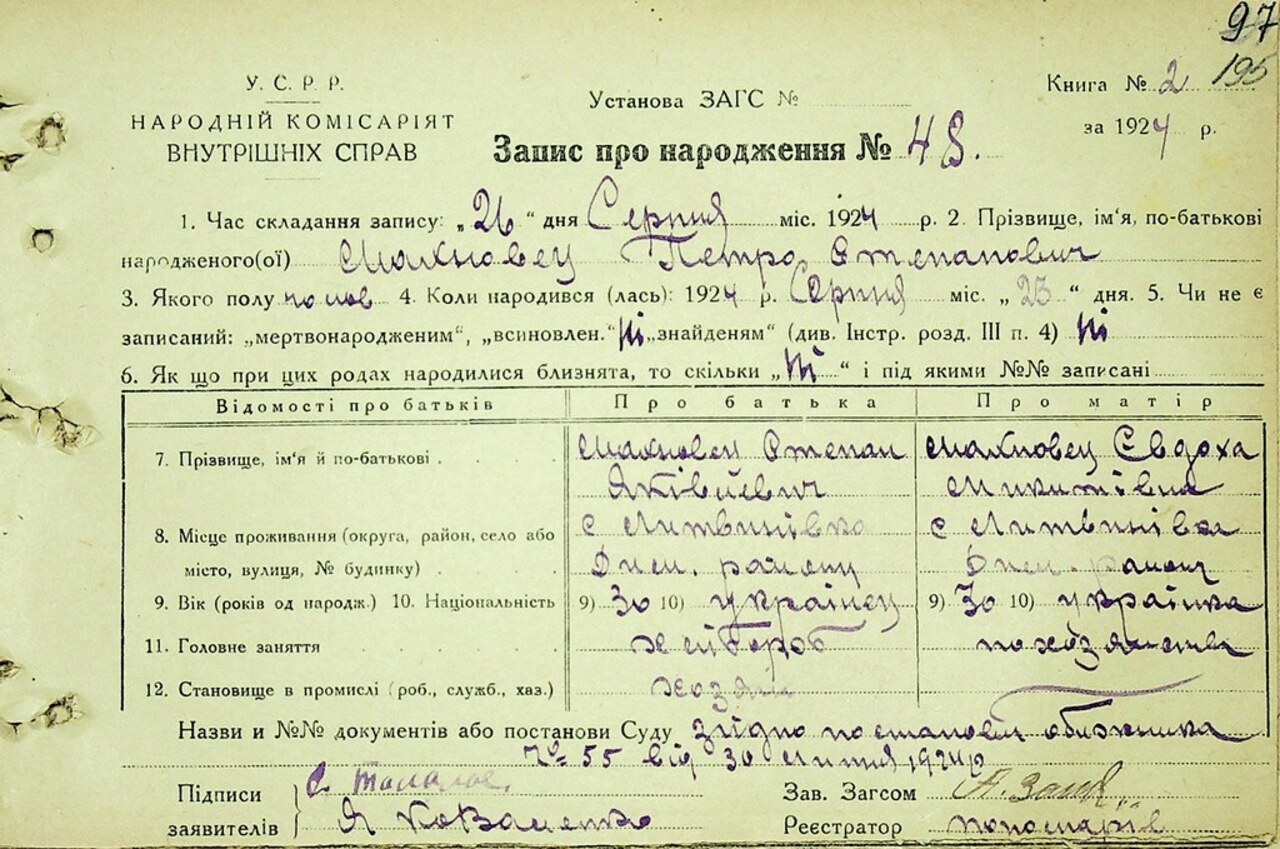 97
195
У. С. Р. Р.
НАРОДНІЙ КОМІСАРІЯТ
ВНУТРІШНІХ СПРАВ
Установа ЗАГС №
Книга № 2
за 1924 р.
Запис про народження № 48.
1. Час складання запису: „26“ дня Серпня міс. 1924 р. 2. Прізвище, ім'я, по-батькові
народженого(ої) Махновец Петро Степанович
3. Якого полу чолов 4. Коли народився (лась): 1924 р. Серпня міс. „23“ дня. 5. Чи не є
записаний: „мертвонародженим“, „всиновлен.“ Ні „знайденям“ (див. Інстр. розд. III п. 4) Ні
6. Як що при цих родах народилися близнята, то скільки „Ні“ і під якими №№ записані
Відомості про батьків Про батька Про матір
7. Прізвище, ім'я й по-батькові . . . Махновец Степан Махновец Євдоха
Яківлевич Микитівна
8. Місце проживання (округа, район, село або с Литвинівка с Литвинівка
місто, вулиця, № будинку) . . Дим. району Дим. району
9. Вік (років од народж.) 10. Національність 9) 30 10) українец 9) 30 10) українка
11. Головне заняття . . . . хлібороб по хозяйству
12. Становище в промислі (роб., служб., хаз.) хозяин
Назви и №№ документів або постанови Суду згідно постанови обіжника
№ 55 від 30 липня 1924 р
Підписи
заявителів
Я Коваленко
Зав. Загсом
Реєстратор